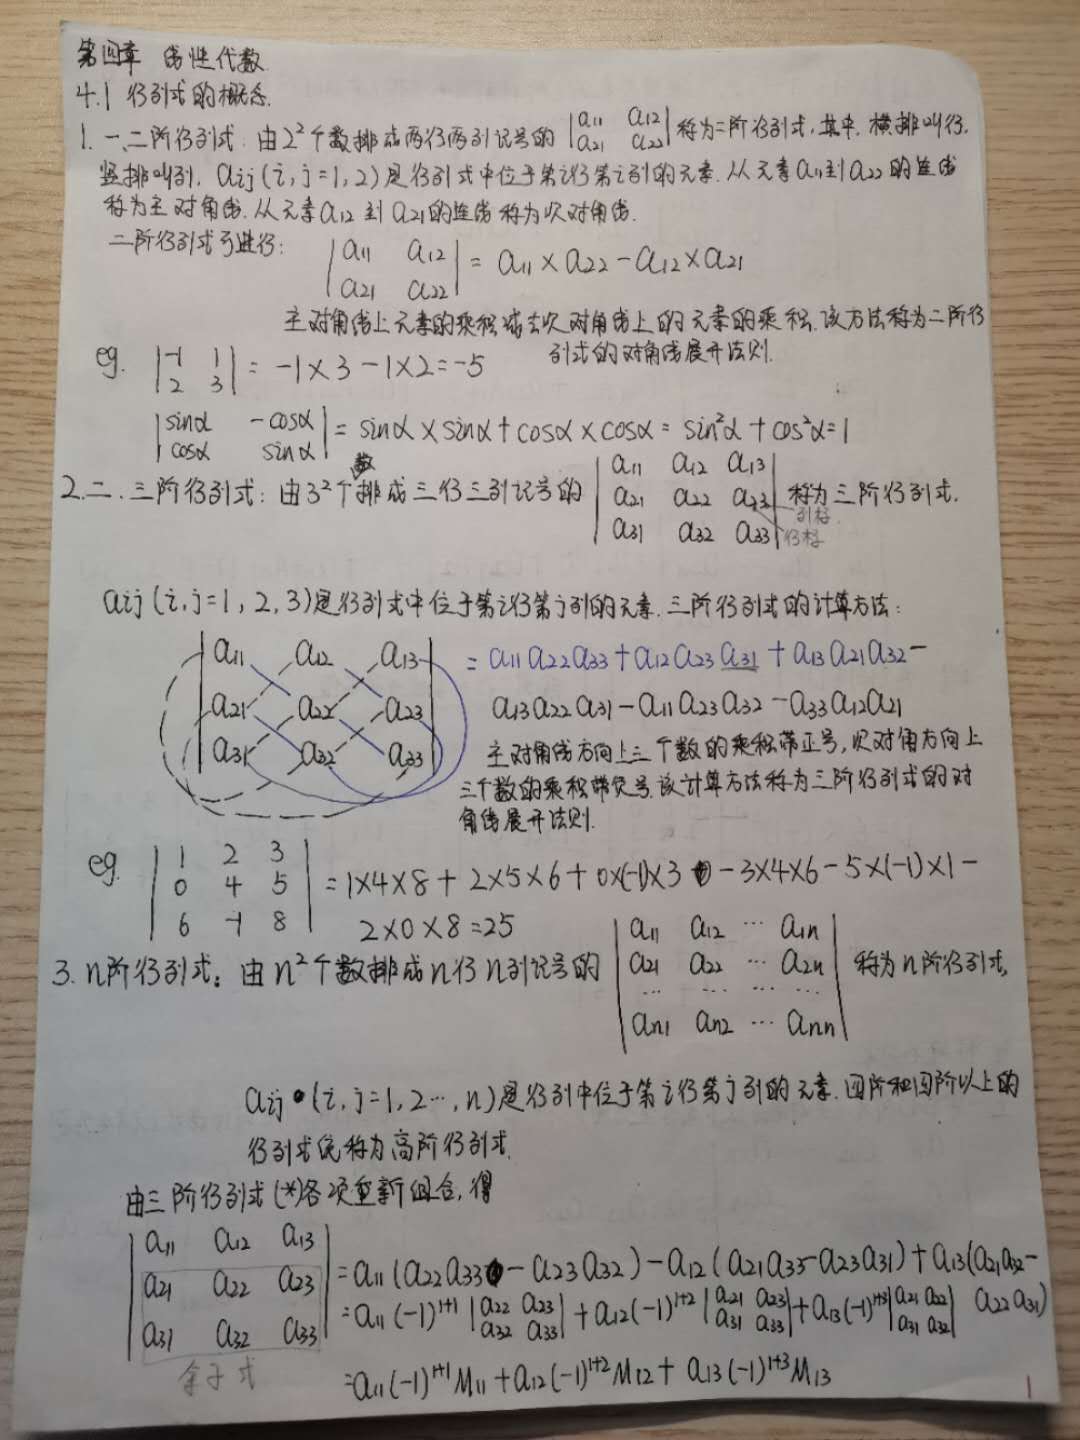 第四章 线性代数
4.1 行列式的概念.
1. 一、二阶行列式: 由2²个数排成两行两列记号的 |a11 a12| 称为二阶行列式, 其中, 横排叫行,
|a21 a22|
竖排叫列. aij(i,j=1,2)是行列式中位于第i行第j列的元素. 从元素a11到a22的连线
称为主对角线. 从元素a12到a21的连线称为次对角线.
二阶行列式可进行:
|a11 a12| = a11×a22-a12×a21
|a21 a22|
主对角线上元素的乘积减去次对角线上的元素的乘积. 该方法称为二阶行
列式的对角线展开法则.
eg. |-1 1| = -1×3-1×2=-5
|2 3|
|sinα -cosα| = sinα×sinα+cosα×cosα= sin²α+cos²α=1
|cosα sinα|
2. 二. 三阶行列式: 由3²个数排成三行三列记号的 |a11 a12 a13|
|a21 a22 a23| 称为三阶行列式.
列标
|a31 a32 a33| 行标
aij(i,j=1,2,3)是行列式中位于第i行第j列的元素. 三阶行列式的计算方法:
|a11 a12 a13| = a11a22a33+a12a23a31+a13a21a32-
|a21 a22 a23| a13a22a31-a11a23a32-a33a12a21
|a31 a32 a33| 主对角线方向上三个数的乘积带正号, 次对角方向上
三个数的乘积带负号. 该计算方法称为三阶行列式的对
角线展开法则.
eg. |1 2 3|
|0 4 5| =1×4×8+2×5×6+0×(-1)×3-3×4×6-5×(-1)×1-
|6 -1 8| 2×0×8=25
3. n阶行列式: 由n²个数排成n行n列记号的 |a11 a12 … a1n|
|a21 a22 … a2n| 称为n阶行列式,
|… … … …|
|an1 an2 … ann|
aij(i,j=1,2…,n)是行列中位于第i行第j列的元素. 四阶和四阶以上的
行列式统称为高阶行列式.
由三阶行列式(*)各项重新组合, 得
|a11 a12 a13|
|a21 a22 a23| =a11(a22a33-a23a32)-a12(a21a33-a23a31)+a13(a21a32-
a22a31)
|a31 a32 a33| =a11(-1)¹⁺¹|a22 a23|+a12(-1)¹⁺²|a21 a23|+a13(-1)¹⁺³|a21 a22|
|a32 a33| |a31 a33| |a31 a32|
余子式
=a11(-1)¹⁺¹M11+a12(-1)¹⁺²M12+a13(-1)¹⁺³M13
1